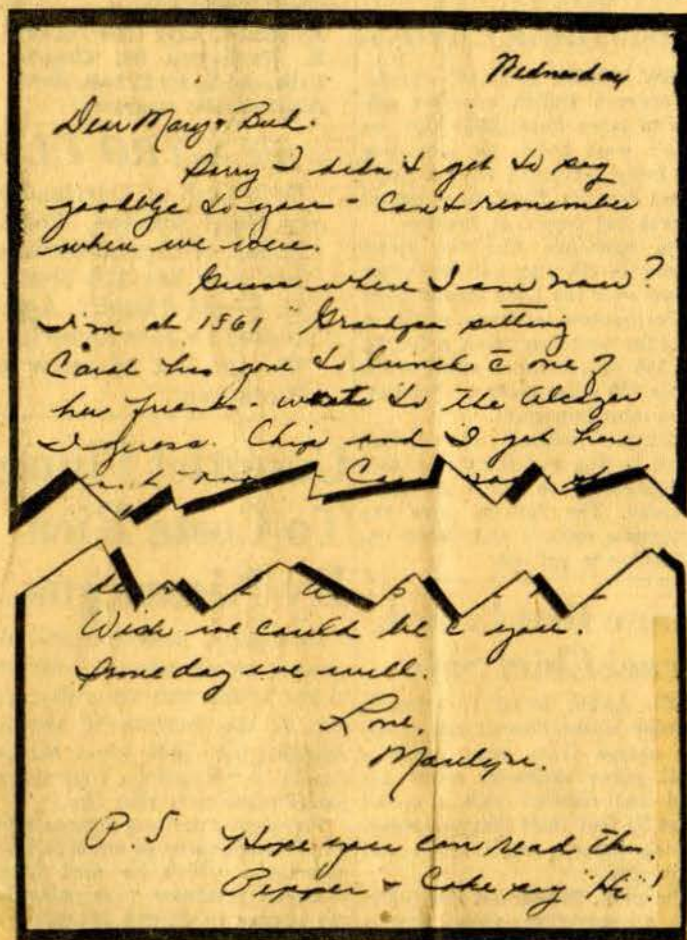 Wednesday
Dear Mary & Bud.
Sorry I didn't get to say
goodbye to you - Can't remember
where we were.
Guess where I am now?
I'm at 1961 "Grandpa sitting
Carol has gone to lunch c̄ one of
her friends - to the Alcazar
I guess. Chip and I get here
Wish we could be c̄ you.
Someday we will.
Love.
Marilyn.
P.S Hope you can read this.
Pepper & Coke say "Hi"!